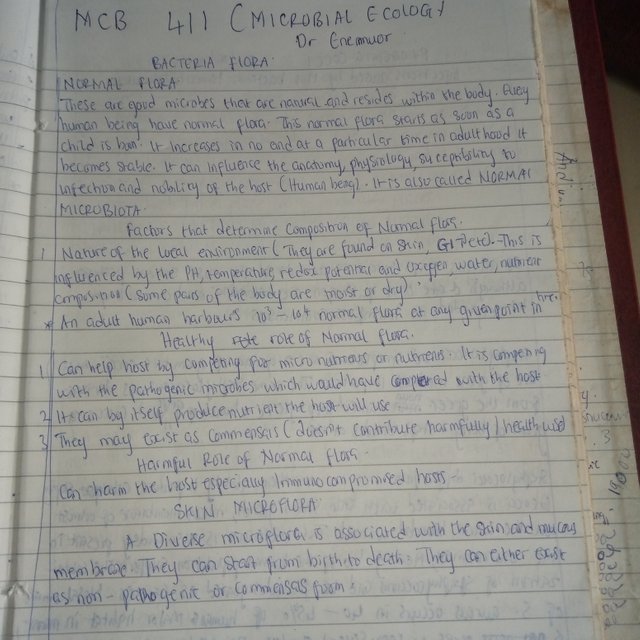 MCB 411 (MICROBIAL ECOLOGY
Dr Enemuor
BACTERIA FLORA.
NORMAL FLORA
These are good microbes that are natural and resides within the body. Every
human being have normal flora. This normal flora starts as soon as a
child is born. It increases in no end at a particular time in adulthood it
becomes stable. It can influence the anatomy, physiology, susceptibility to
infection and of the host (Human being). It is also called NORMAL
MICROBIOTA.
Factors that determine composition of Normal flora.
1 Nature of the local environment (They are found on skin, GIT etc). This is
influenced by the PH, temperature, redox potential and oxygen, water, nutrient
composition (some parts of the body are moist or dry)
* An adult human harbours normal flora at any given point in time.
Healthy role of Normal flora.
1 Can help host by competing for micro nutrients or nutrients. It is competing
with the pathogenic microbes which would have competed with the host
2 It can by itself produce nutrient the host will use
3 They may exist as commensals (doesn't contribute harmfully / health wise)
Harmful Role of Normal flora.
Can harm the host especially immunocompromised hosts
SKIN MICROFLORA
A Diverse microflora is associated with the skin and mucous
membrane. They can start from birth to death. They can either exist
as non-pathogenic or commensals form.